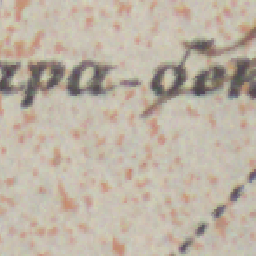 ара-бек